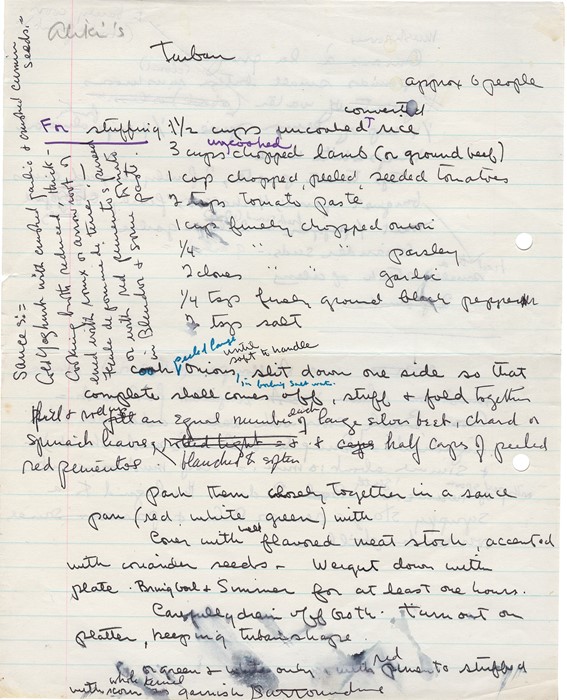 Aliki's
Turban
approx 6 people
converted
For stuffing 1 1/2 cups uncooked rice
uncooked
3 cups chopped lamb (or ground beef)
1 cup chopped, peeled, seeded tomatoes
tomato paste
1 cup finely chopped onion
1/4 " " parsley
2 cloves " " garlic
1/4 tsp finely ground black pepper
tsp salt
peeled large until soft to handle
cook Onions, slit down one side so that
in boiling salt water
complete shell comes off, stuff & fold together
Fill & roll an equal number each large silver beet, chard or
spinach leaves, rolled tight & cups half cups of peeled
red pementos blanched & soften
Pack them closely together in a sauce
pan (red, white, green) with
Cover with well flavored meat stock, accented
with coriander seeds - Weight down with
plate. Bring to boil & Simmer for at least one hour.
Carefully drain off broth. Turn out on
platter, keeping turban shape.
or green & white only with red pimento stuffed
with whole kernel corn as garnish surrounding
Sauces:=
Cold Yoghurt with crushed garlic & crushed cumin seeds.-
Cooking broth reduced, thick-
ened with roux or arrow root or
fecule de pomme de terre, pureed
or with red pementos & tomato
in Blender & some paste.